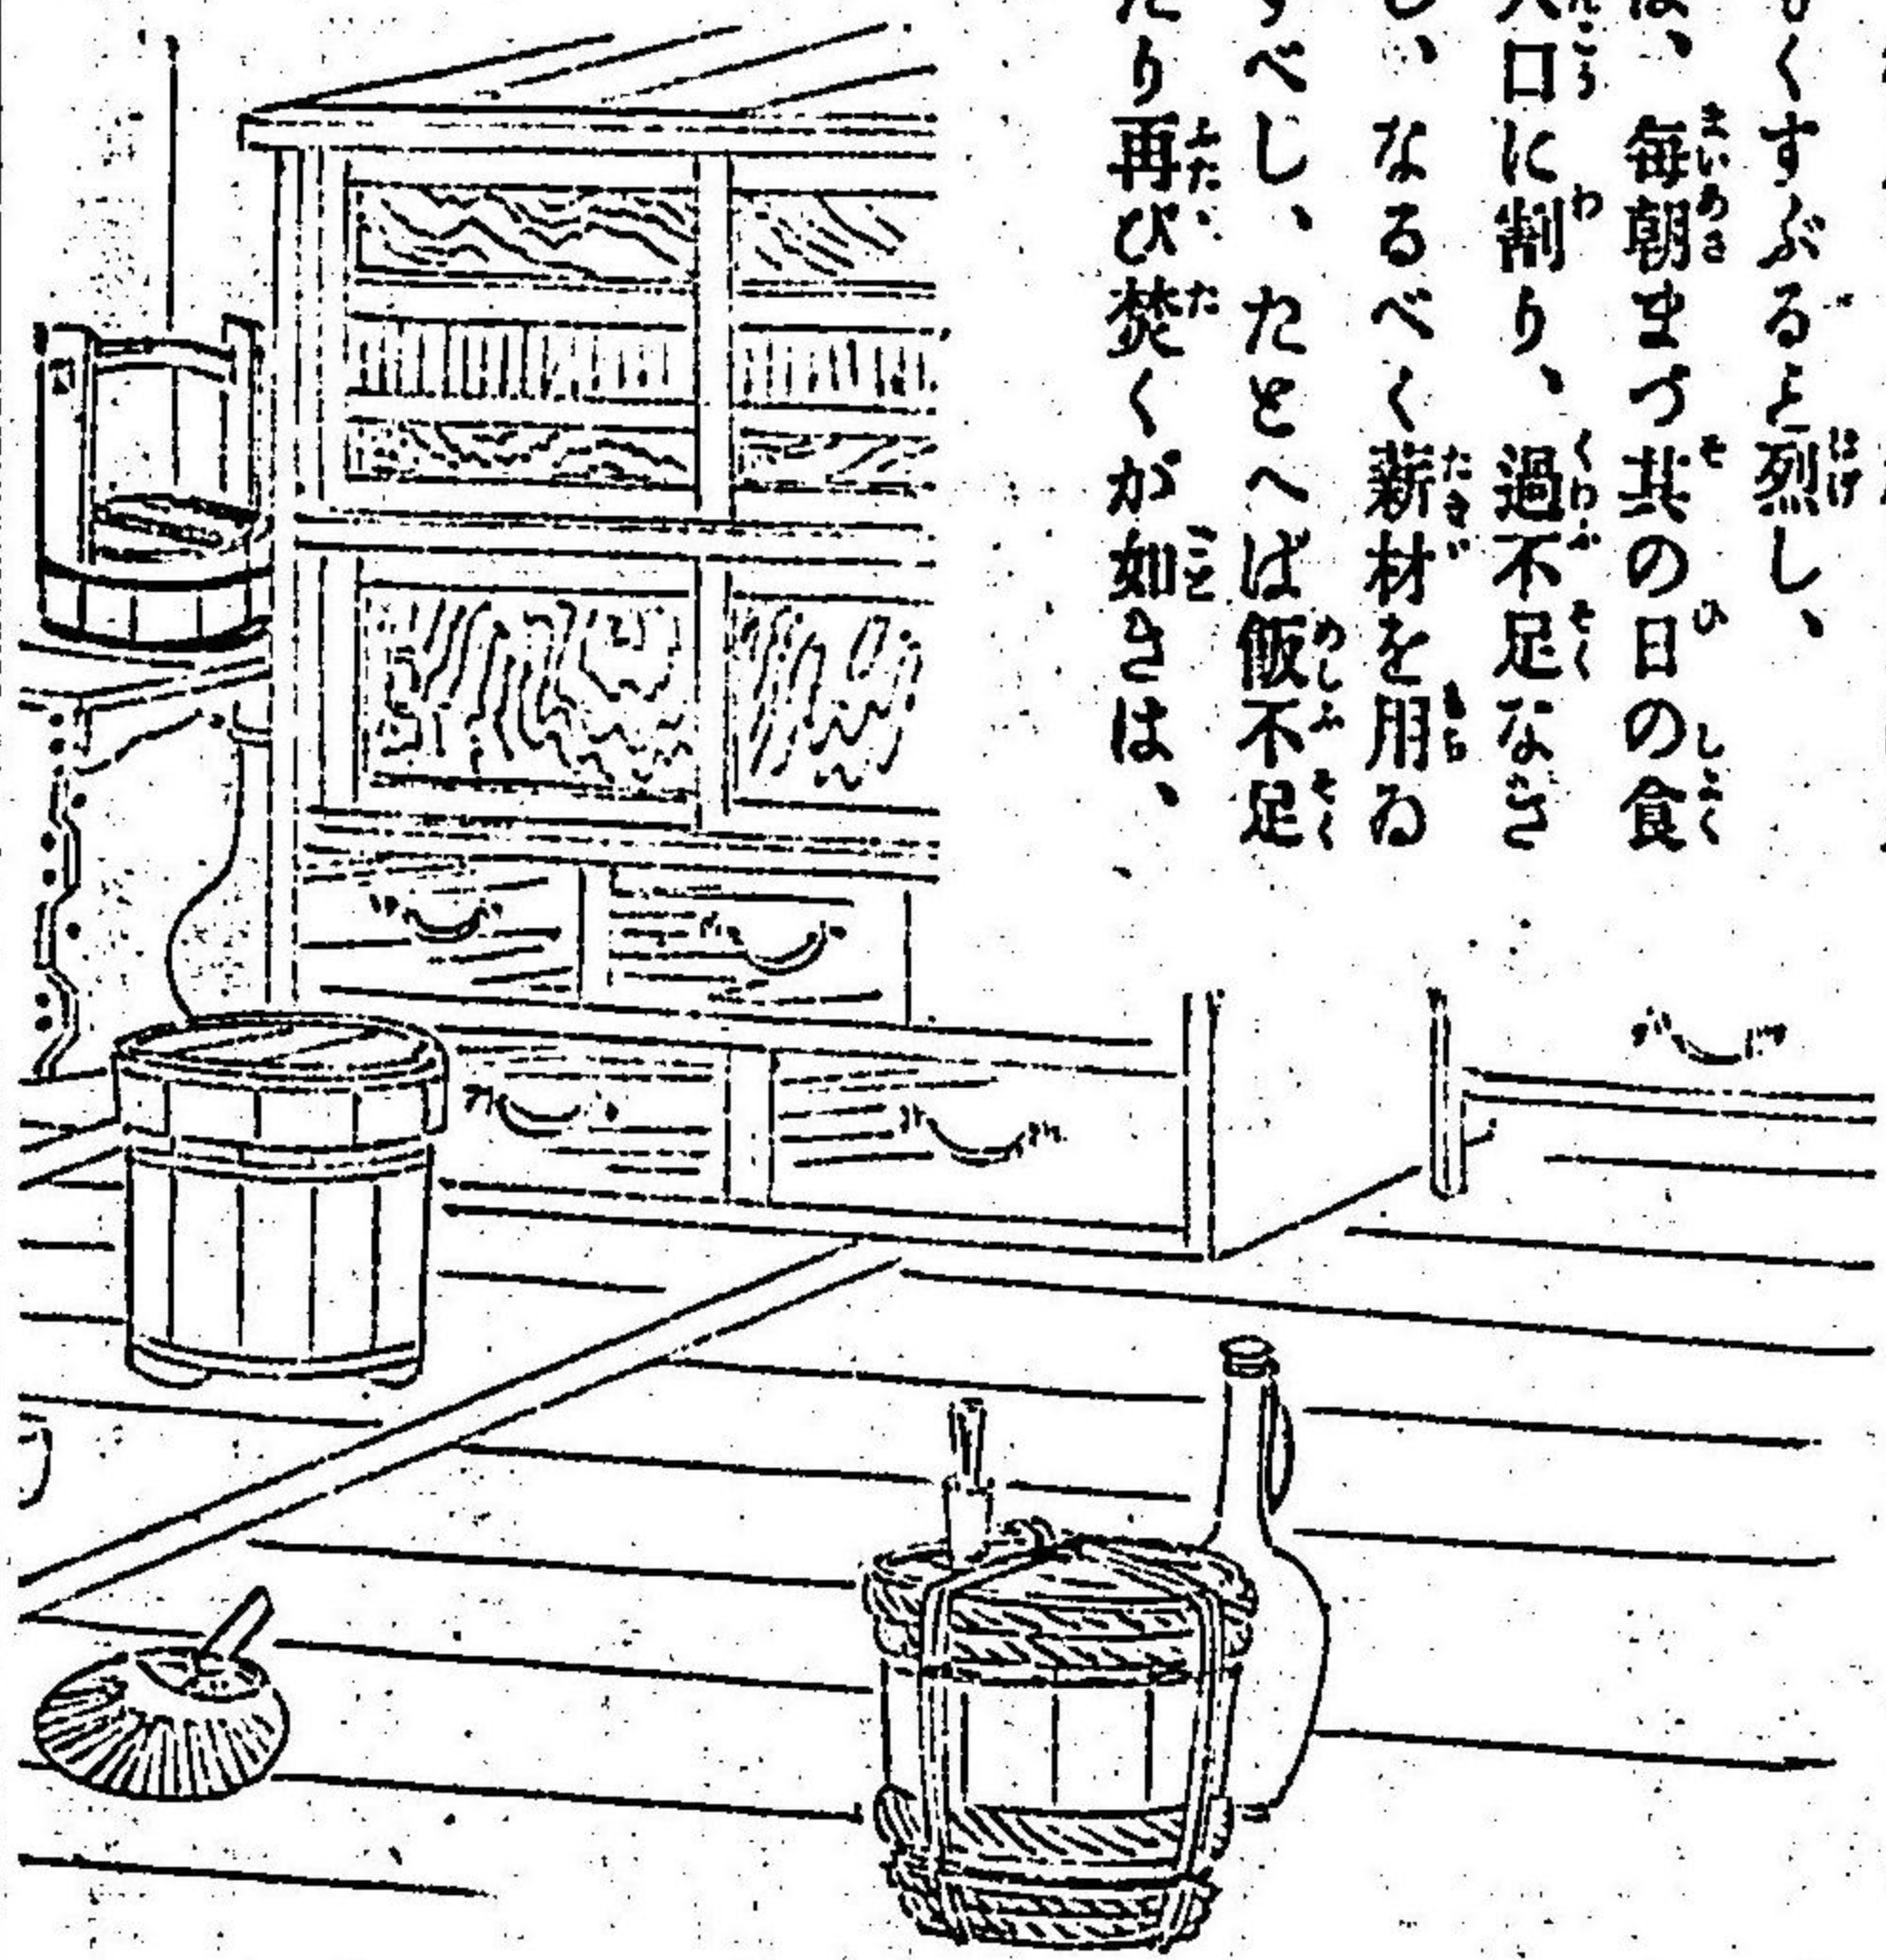 くすぶると烈し、
、毎朝まづ其の日の食
人口に割り、過不足なさ
し、なるべく薪材を用ゐ
べし、たとへば飯不足
たり再び焚くが如きは、